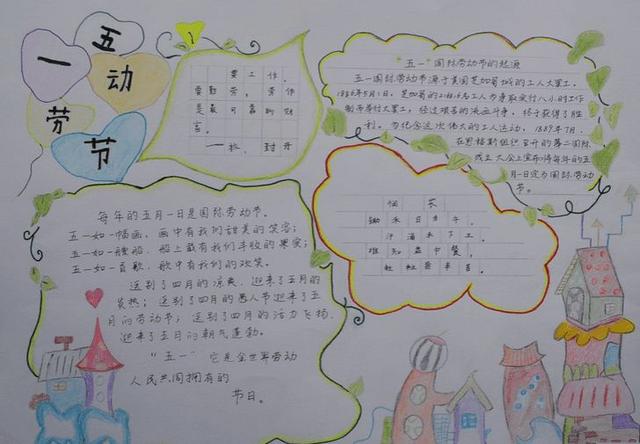 五一劳动节
要工作，
要勤劳，劳作
是最可靠的财
富。
“五一”国际劳动节的起源
五一国际劳动节源于美国芝加哥城的工人大罢工。
1886年5月1日，芝加哥的
工人为争取实行八小时工作
制而举行大罢工，经过艰苦的流血斗争，终于获得了胜
利。为纪念这次伟大的工人运动，1889年7月，
在恩格斯组织召开的第二国际
成立大会上宣布将每年的五
月一日定为国际劳动
节。
悯农
锄禾日当午，
汗滴禾下土。
谁知盘中餐，
粒粒皆辛苦。
每年的五月一日是国际劳动节。
五一如一幅画，画中有我们甜美的笑容；
五一如一艘船，船上载有我们丰收的果实；
五一如一首歌，歌中有我们的欢笑。
送别了四月的凉爽，迎来了五月的
炎热；送别了四月的愚人节迎来了五
月的劳动节；送别了四月的活力飞扬，
迎来了五月的朝气蓬勃。
“五一”它是全世界劳动
人民共同拥有的
节日。